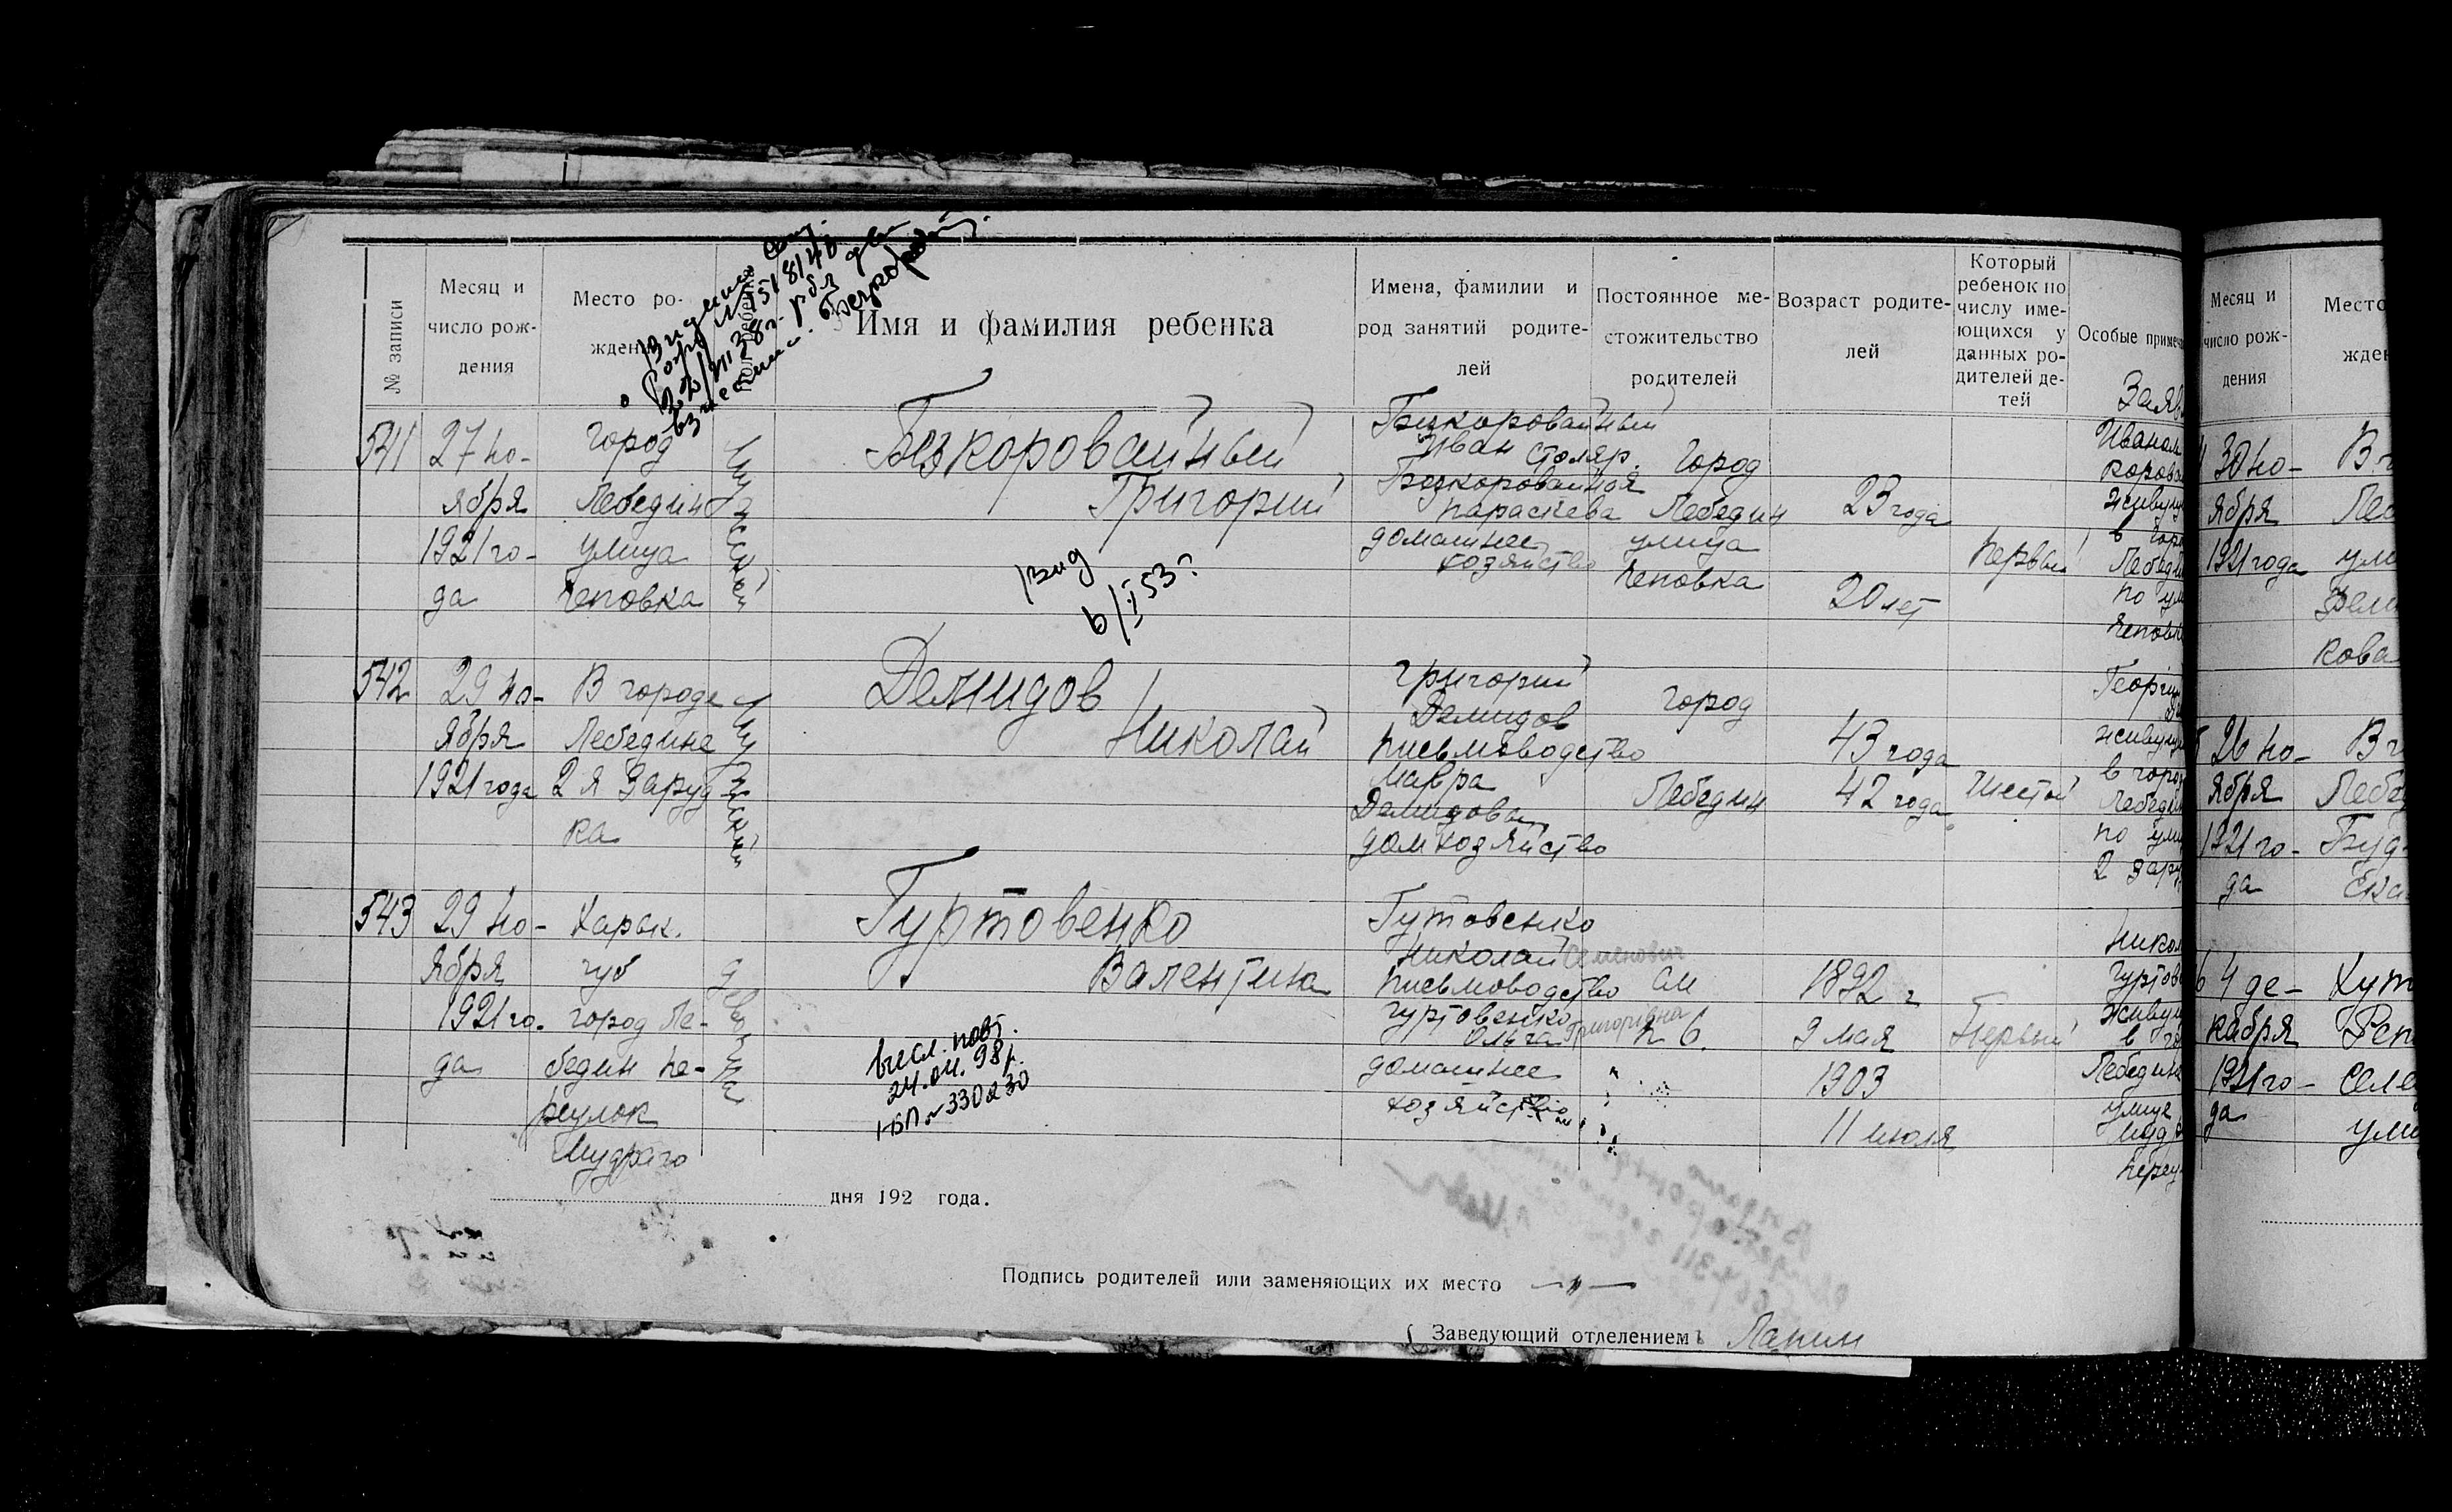 № записи
Месяц и
число рож-
дения
Место ро-
ждения
Имя и фамилия ребенка
Имена, фамилии и
род занятий родите-
лей
Постоянное ме-
стожительство
родителей
Возраст родите-
лей
Который
ребенок по
числу име-
ющихся у
данных ро-
дителей де-
тей
Особые примеч
541
27 но-
ября
1921 го-
да
город
Лебедин
улица
Чеповка
мужской
Безкоровайный
Григорий
вид
6/I 53г
Безкоровайный
Иван столяр.
Безкоровайная
Параскева
домашнее
хозяйство
город
Лебедин
улица
Чеповка
23 года
20 лет
первый
Заяв
Иваном
корова
живущ
в горо
Лебеди
по ули
Чеповк
542
29 но-
ября
1921 года
В городе
Лебедине
2 я Заруд
ка
мужской
Демидов
Николай
Григорий
Демидов
письмоводство
Мавра
Демидова
дом хозяйство
город
Лебедин
43 года
42 года
шестой
Георги
живущ
в горо
Лебедин
по ули
2 Зару
543
29 но-
ября
1921 го-
да
Харьк.
губ
город Ле-
бедин пе-
реулок
Мудраго
девочка
Гуртовенко
Валентина
висл. повт.
24.04.98р.
I-БП № 330230
Гутовенко
Николай Семенович
письмоводство
Гуртовенко
Ольга Григорівна
домашнее
хозяйство
1892 г
9 мая
1903
11 июля
Первый
Никол
Гуртов
живущ
в го
Лебедине
улице
Муд
переу
дня 192 года.
Подпись родителей или заменяющих их место —〃—
Заведующий отделением Лапин
Месяц и
число рож-
дения
Место
жден
30 но-
ября
1921 года
В г
Леб
ули
кова
26 но-
ября
1921 го-
да
В г
Лебе
Буд-
Ека
4 де-
кабря
1921 го-
да
Хут
Реп
Селе
ули